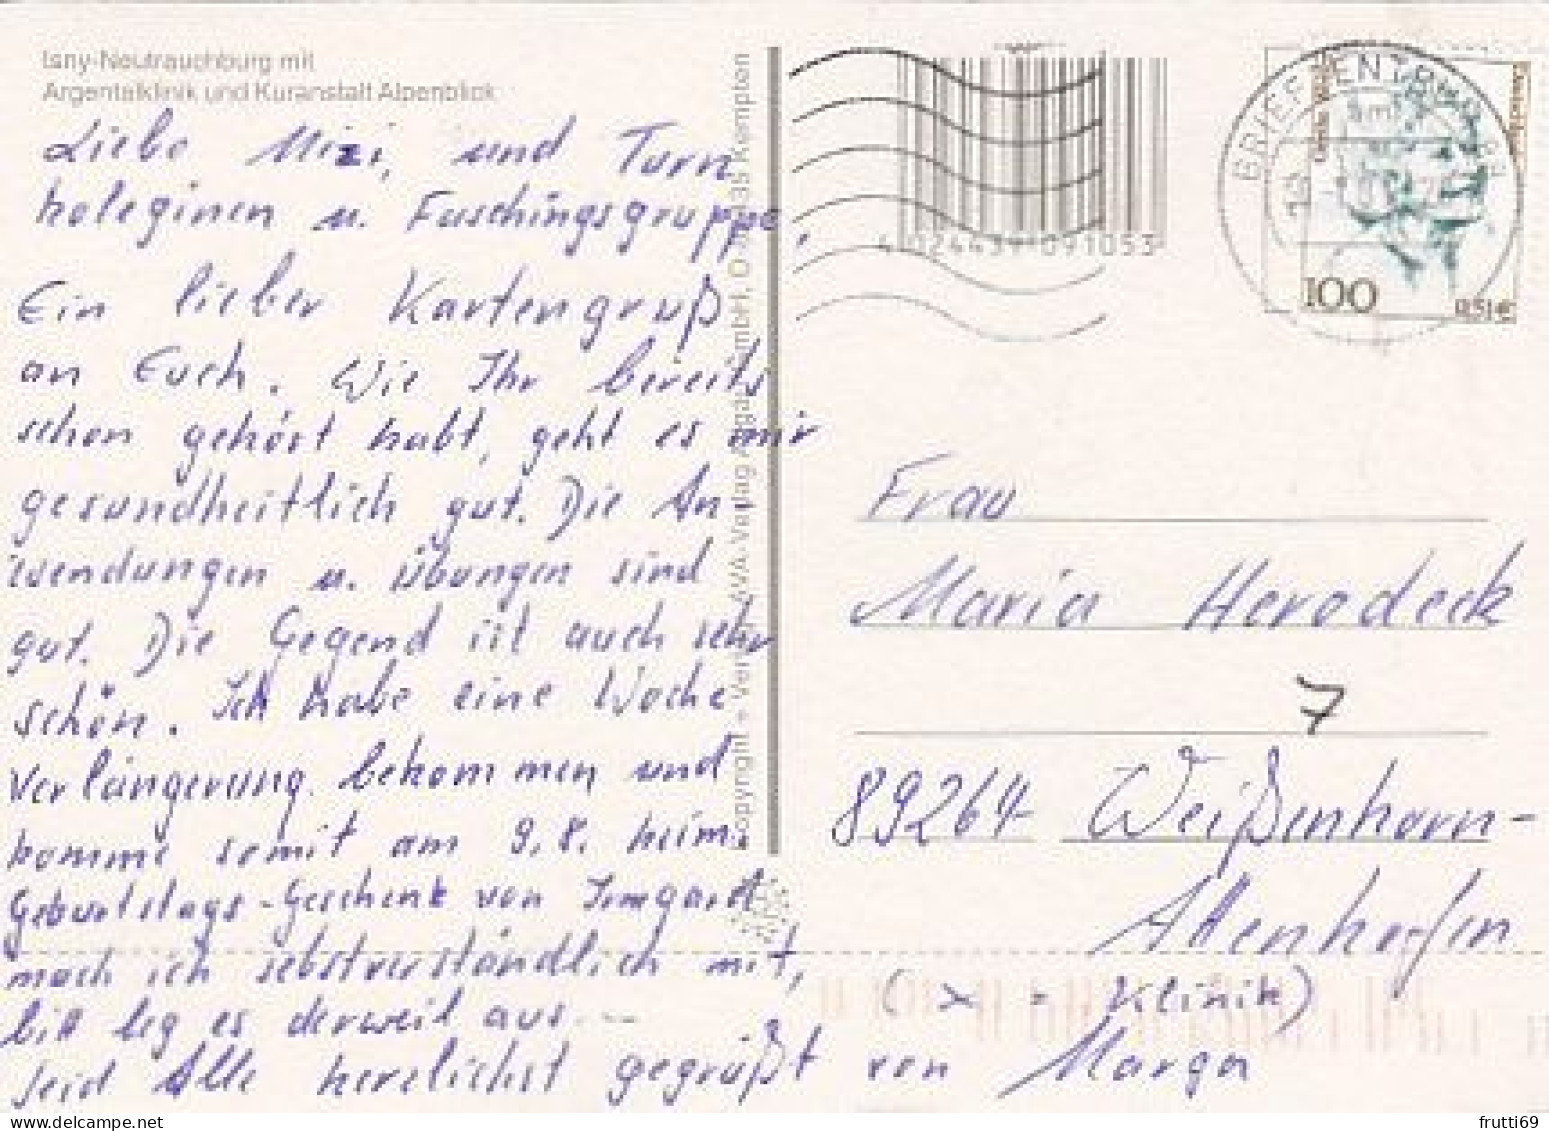 Isny-Neutrauchburg mit
Argentalklinik und Kuranstalt Alpenblick
Liebe Mizi, und Turn
koleginen u. Faschingsgruppe,
Ein lieber Kartengruß
an Euch. Wie Ihr bereits
schon gehört habt, geht es mir
gesundheitlich gut. Die An
wendungen u. Übungen sind
gut. Die Gegend ist auch sehr
schön. Ich habe eine Woche
Verlängerung bekommen und
komme somit am 9.8. heim.
Geburtstags-Geschenk von Irmgard
mach ich selbstverständlich mit,
bitt leg es derweil aus. --
Seid Alle herzlichst gegrüßt von Marga
(x = Klinik)
4 024439 091053
BRIEFZENTRUM
100
0,51€
Frau
Maria Herodeck
7
89264 Weißenhorn-
Attenhofen
frutti69